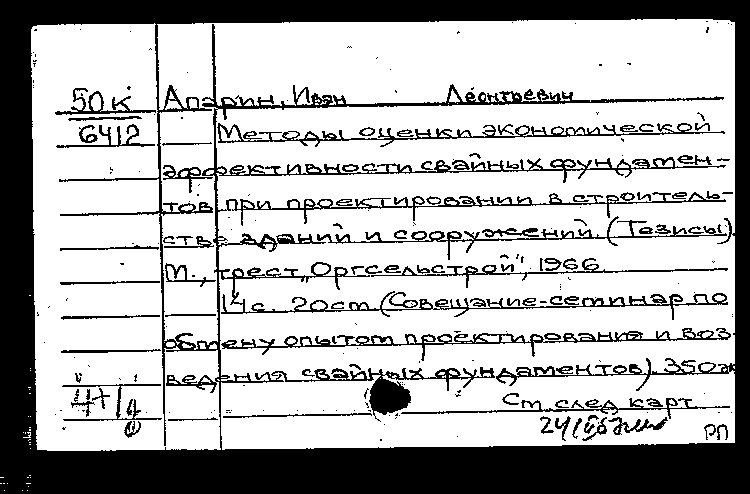 50к Апарин, Иван Леонтьевич
6412 Методы оценки экономической
эффективности свайных фундамен-
тов при проектировании в строитель-
стве зданий и сооружений. (Тезисы).
М., трест „Оргсельстрой", 1966
14с. 20см. (Совещание-семинар по
обмену опытом проектирования и воз-
ведения свайных фундаментов). 350эк
См. след карт
РП